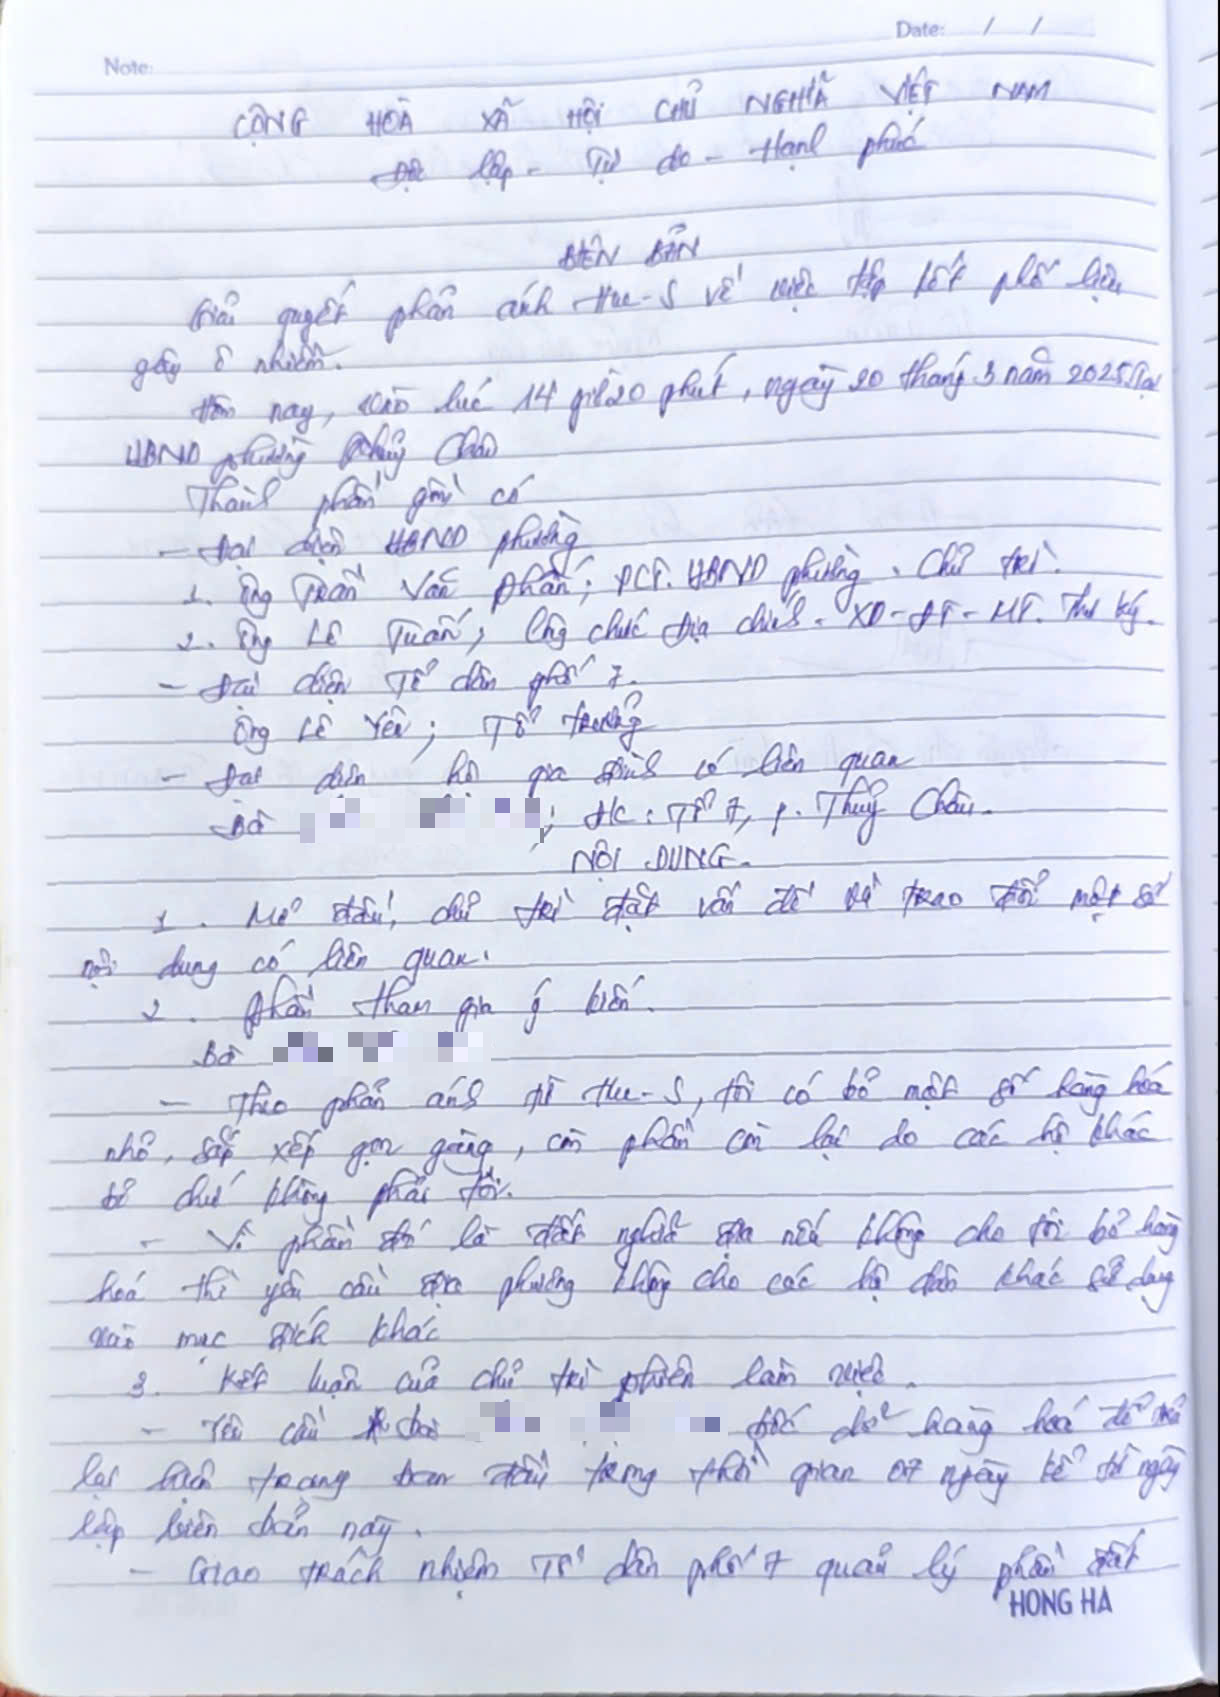 Date: / /
Note:
CỘNG HOÀ XÃ HỘI CHỦ NGHĨA VIỆT NAM
Độc lập - Tự do - Hạnh phúc
BIÊN BẢN
Giải quyết phản ánh Hue-S về việc tập kết phế liệu
gây ô nhiễm.
Hôm nay, vào lúc 14 giờ 20 phút, ngày 20 tháng 3 năm 2025, tại
UBND phường Thuỷ Châu
Thành phần gồm có
- Đại diện UBND phường
1. Ông Trần Văn Phấn; PCT. UBND phường. Chủ trì.
2. Ông Lê Tuấn; Công chức Địa chính - XD - ĐT - MT. Thư ký.
- Đại diện Tổ dân phố 7.
Ông Lê Yên; Tổ trưởng
- Đại diện hộ gia đình có liên quan
Bà ; ĐC: Tổ 7, p. Thuỷ Châu.
NỘI DUNG.
1. Mở đầu, chủ trì đặt vấn đề và trao đổi một số
nội dung có liên quan.
2. Phần tham gia ý kiến.
Bà
- Theo phản ánh từ Hue-S, tôi có bỏ một số hàng hoá
nhỏ, sắp xếp gọn gàng, còn phần còn lại do các hộ khác
bỏ chứ không phải tôi.
- Vì phần đó là đất nghĩa địa nếu không cho tôi bỏ hàng
hoá thì yêu cầu địa phương không cho các hộ dân khác sử dụng
vào mục đích khác
3. Kết luận của chủ trì phiên làm việc.
- Yêu cầu bà bốc dỡ hàng hoá để trả
lại hiện trạng ban đầu trong thời gian 07 ngày kể từ ngày
lập biên bản này.
- Giao trách nhiệm Tổ dân phố 7 quản lý phần đất
HONG HA